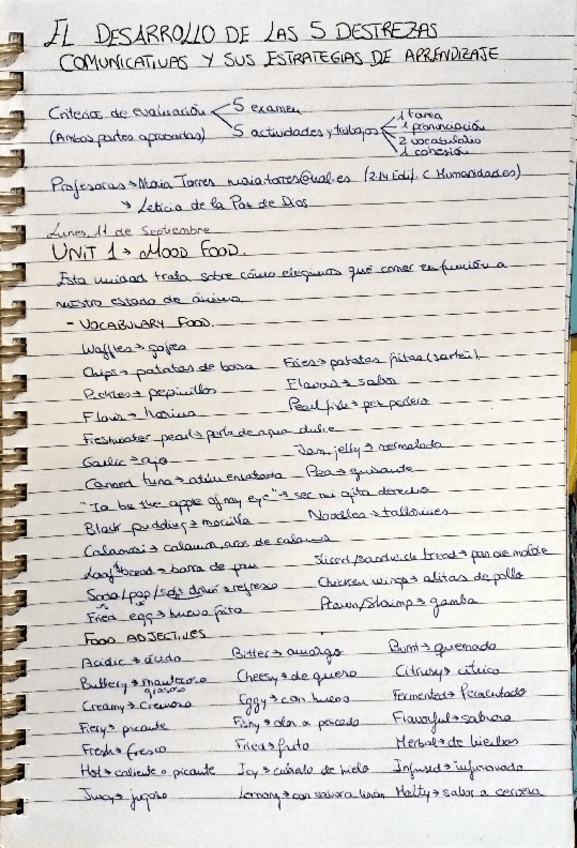 EL DESARROLLO DE LAS 5 DESTREZAS
COMUNICATIVAS Y SUS ESTRATEGIAS DE APRENDIZAJE
Criterios de evaluación 5 examen
(Ambas partes aprobadas) 5 actividades y trabajos
1 tarea
1 pronunciación
2 vocabulario
1 cohesión
Profesoras → Maria Torres (2.14 Edif. C Humanidades)
→ Leticia de la Paz de Dios
Lunes, 11 de Septiembre
UNIT 1 → MOOD FOOD.
Esta unidad trata sobre cómo elegimos qué comer en función a
nuestro estado de ánimo.
- VOCABULARY FOOD.
Waffles → gofres
Chips → patatas de bolsa Fries → patatas fritas (sartén)
Pickles → pepinillos Flavour → sabor
Flour → harina Pearl
Freshwater pearl → perla de agua dulce
Garlic → ajo Jam, jelly → mermelada
Canned tuna → atún enlatado Pea → guisante
"To be the apple of my eye" → ser mi ojito derecho
Black pudding → morcilla Noodles → tallarines
Calamari → calamar, aros de calamar
Loaf bread → barra de pan Sliced/sandwich bread → pan de molde
Soda/pop/soft drink → refresco Chicken wings → alitas de pollo
Fried egg → huevo frito Prawn/Shrimp → gamba
FOOD ADJECTIVES
Acidic → ácido Bitter → amargo Burnt → quemado
Buttery → mantecoso Cheesy → de queso Citrusy → cítrico
grasoso
Creamy → cremoso Eggy → con huevo Fermented → fermentado
Fiery → picante Fishy → olor a pescado Flavourful → sabroso
Fresh → fresco Fried → frito Herbal → de hierbas
Hot → caliente o picante Icy → helo Infused → infusionado
Juicy → jugoso Lemony → con sabor a limón Malty → sabor a cerveza